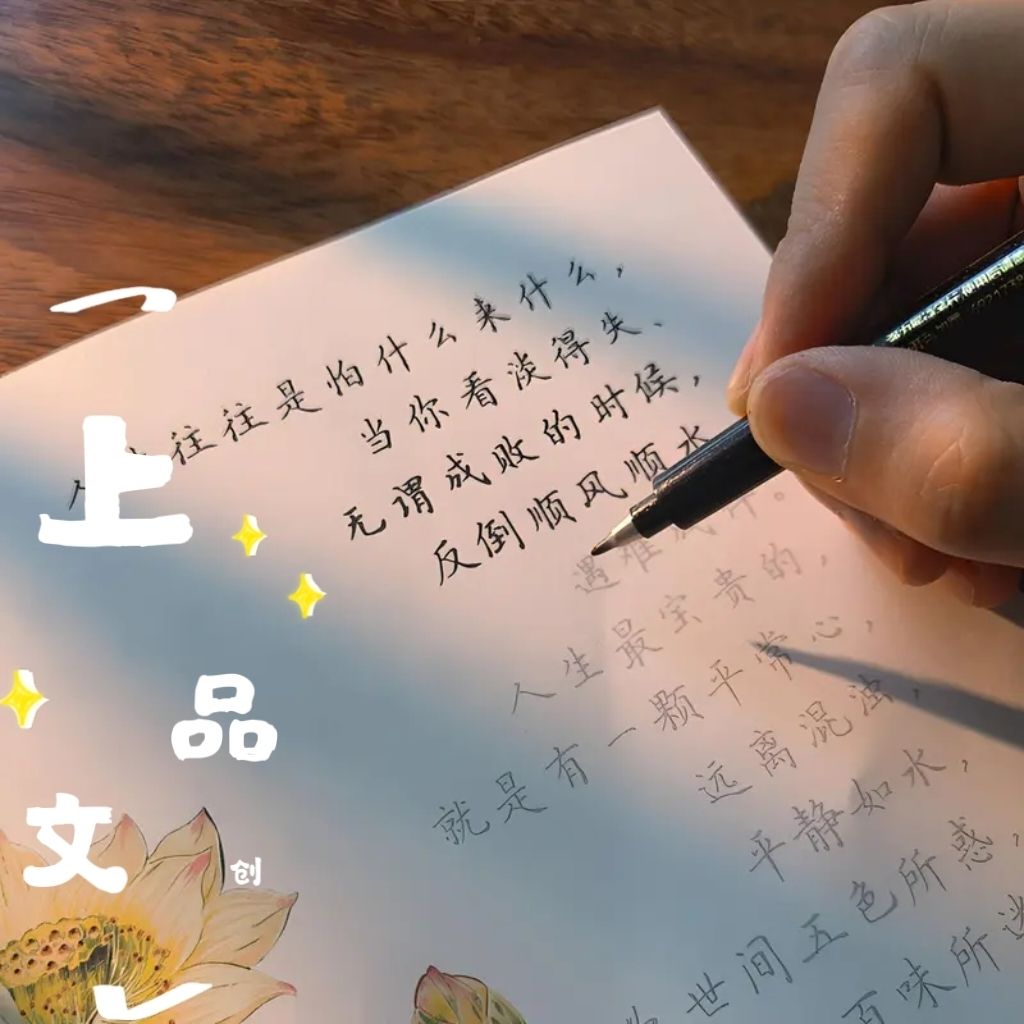 上
品
文
创
往往是怕什么来什么，
当你看淡得失、
无谓成败的时候，
反倒顺风顺水
遇难成祥。
人生最宝贵的，
就是有一颗平常心，
远离混浊，
平静如水，
世间五色所惑，
百味所迷